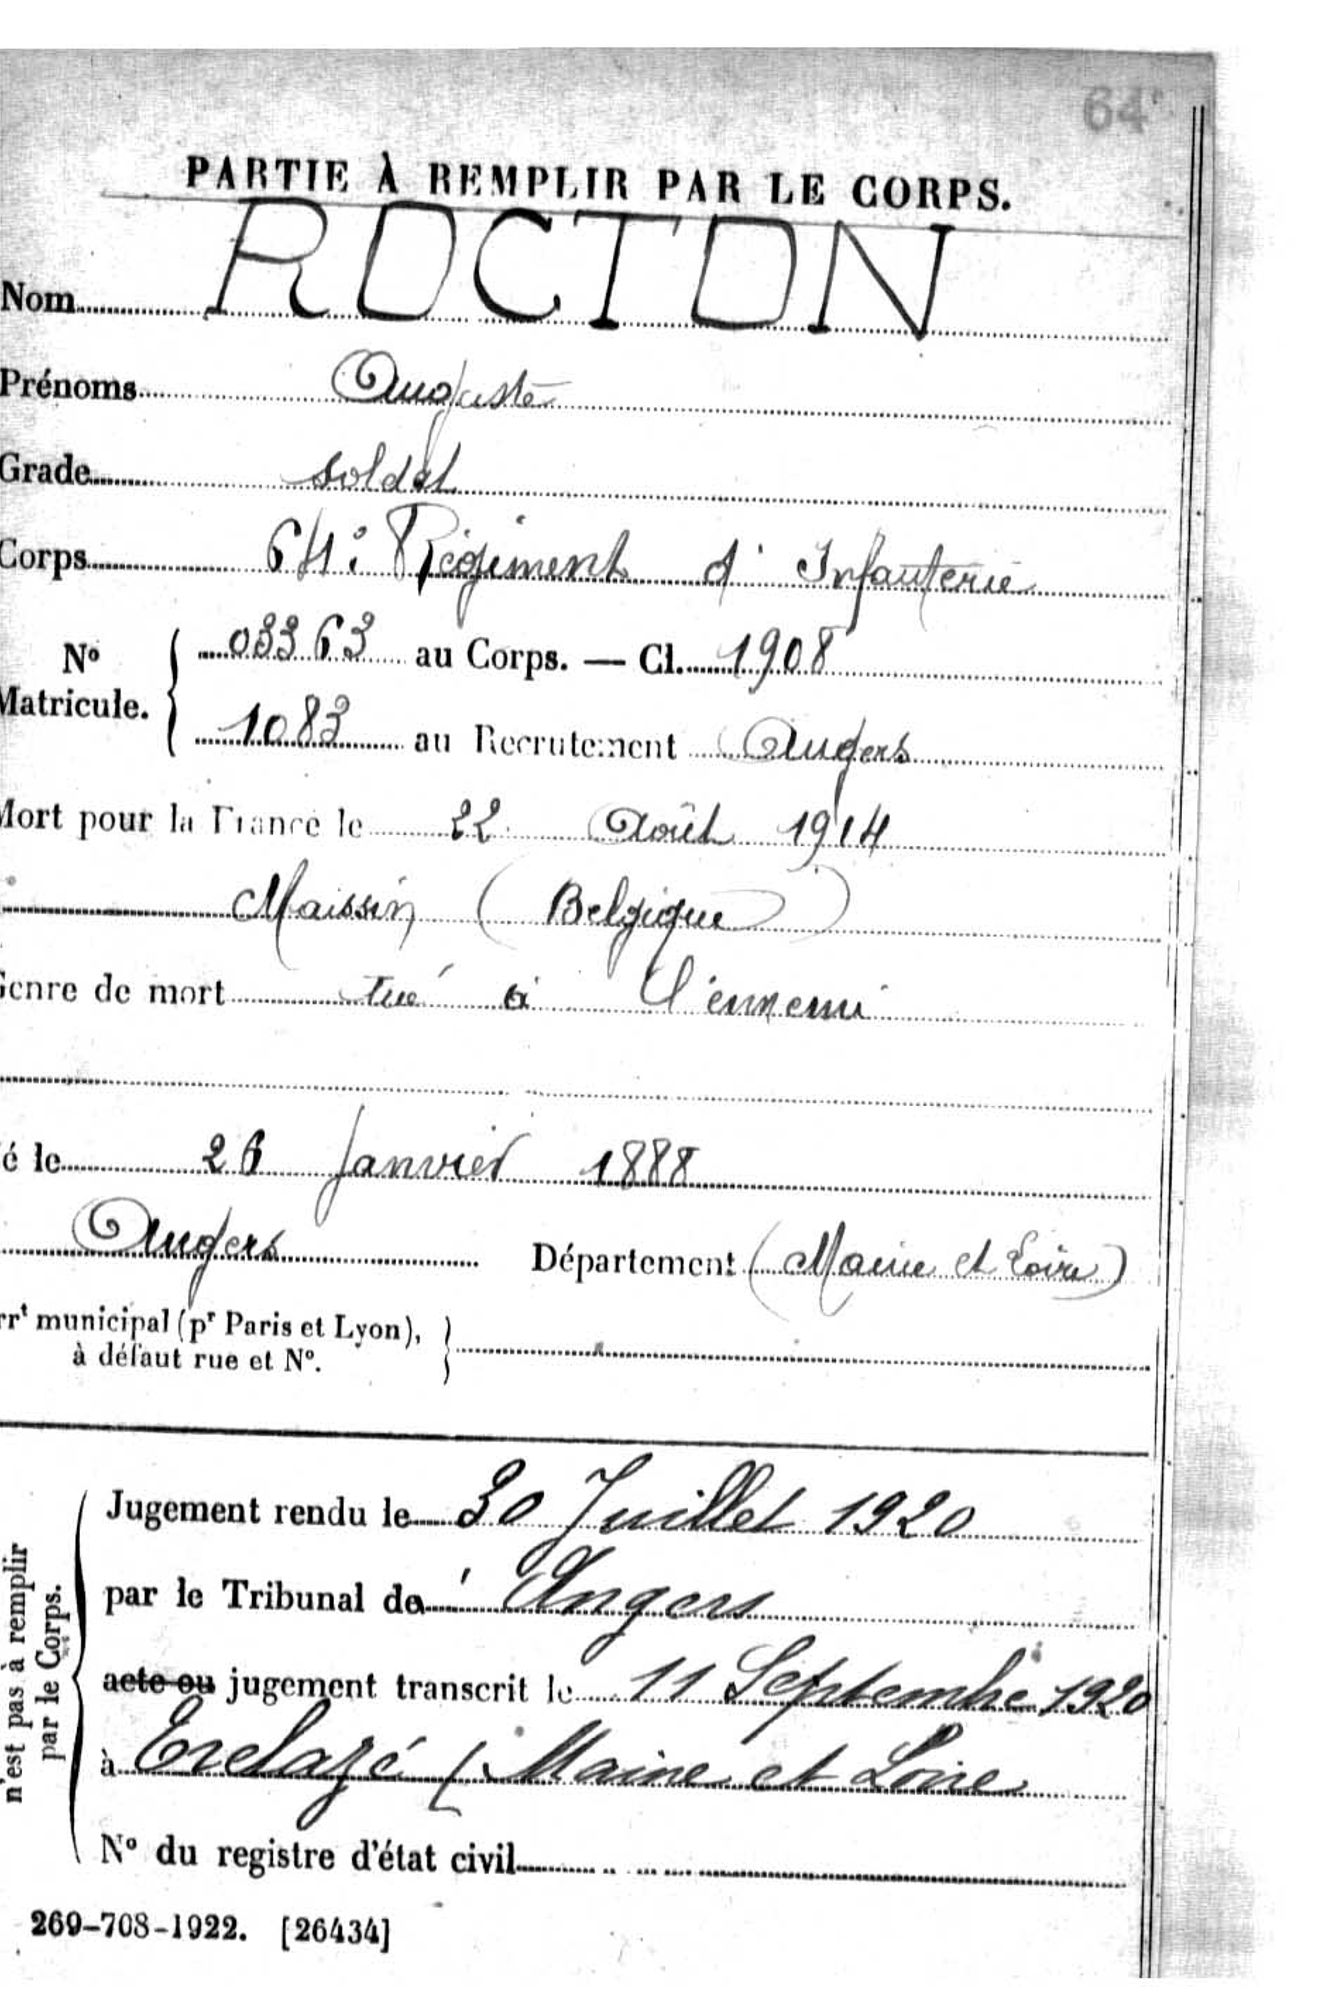 64
PARTIE À REMPLIR PAR LE CORPS.
Nom ROCTON
Prénoms Auguste
Grade soldat
Corps 64e Régiment d'Infanterie
N° Matricule. { 03363 au Corps. — Cl. 1908
1083 au Recrutement Angers
Mort pour la France le 22 Août 1914
Maissin (Belgique)
Genre de mort tué à l'ennemi
é le 26 Janvier 1888
Angers Département (Maine et Loire)
rrt municipal (pr Paris et Lyon), }
à défaut rue et N°.
n'est pas à remplir
par le Corps.
Jugement rendu le 30 Juillet 1920
par le Tribunal de Angers
acte ou jugement transcrit le 11 Septembre 1920
à Trelazé (Maine et Loire
N° du registre d'état civil
269-708-1922. [26434]